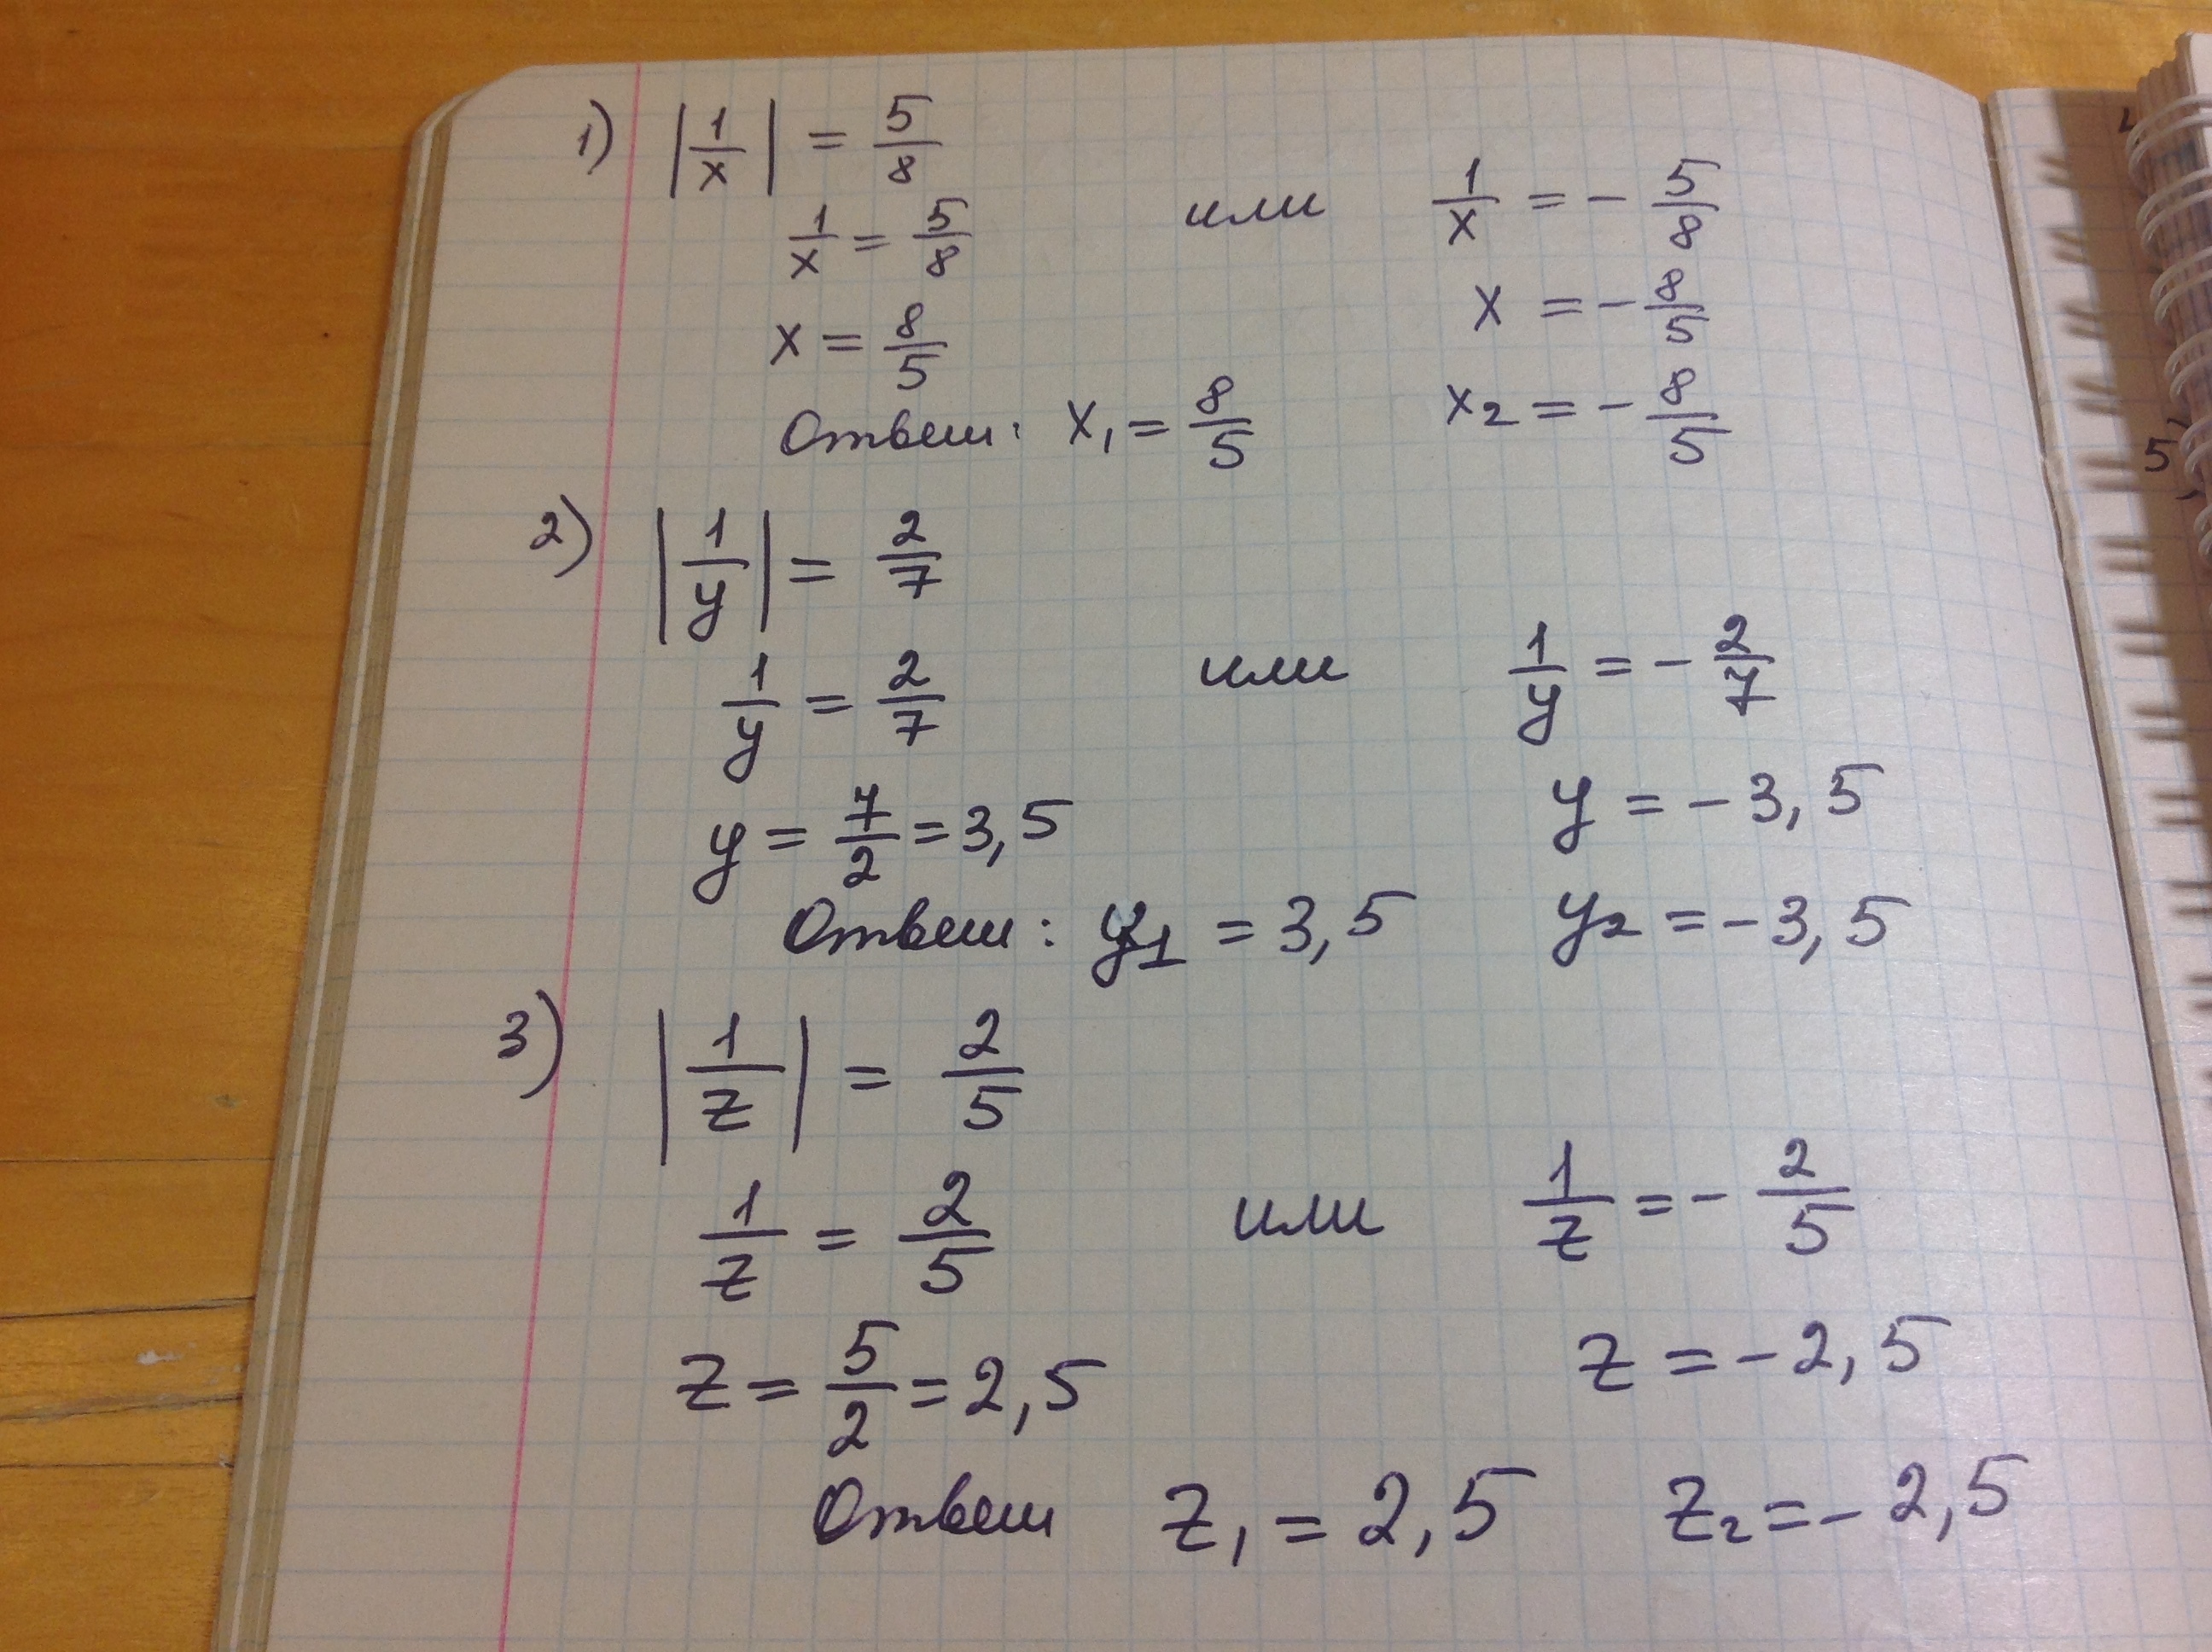 1) |1/x| = 5/8
1/x = 5/8 или 1/x = - 5/8
x = 8/5 x = - 8/5
Ответ: x₁ = 8/5 x₂ = - 8/5
2) |1/y| = 2/7
1/y = 2/7 или 1/y = - 2/7
y = 7/2 = 3,5 y = - 3,5
Ответ: y₁ = 3,5 y₂ = - 3,5
3) |1/z| = 2/5
1/z = 2/5 или 1/z = - 2/5
z = 5/2 = 2,5 z = - 2,5
Ответ z₁ = 2,5 z₂ = - 2,5
5